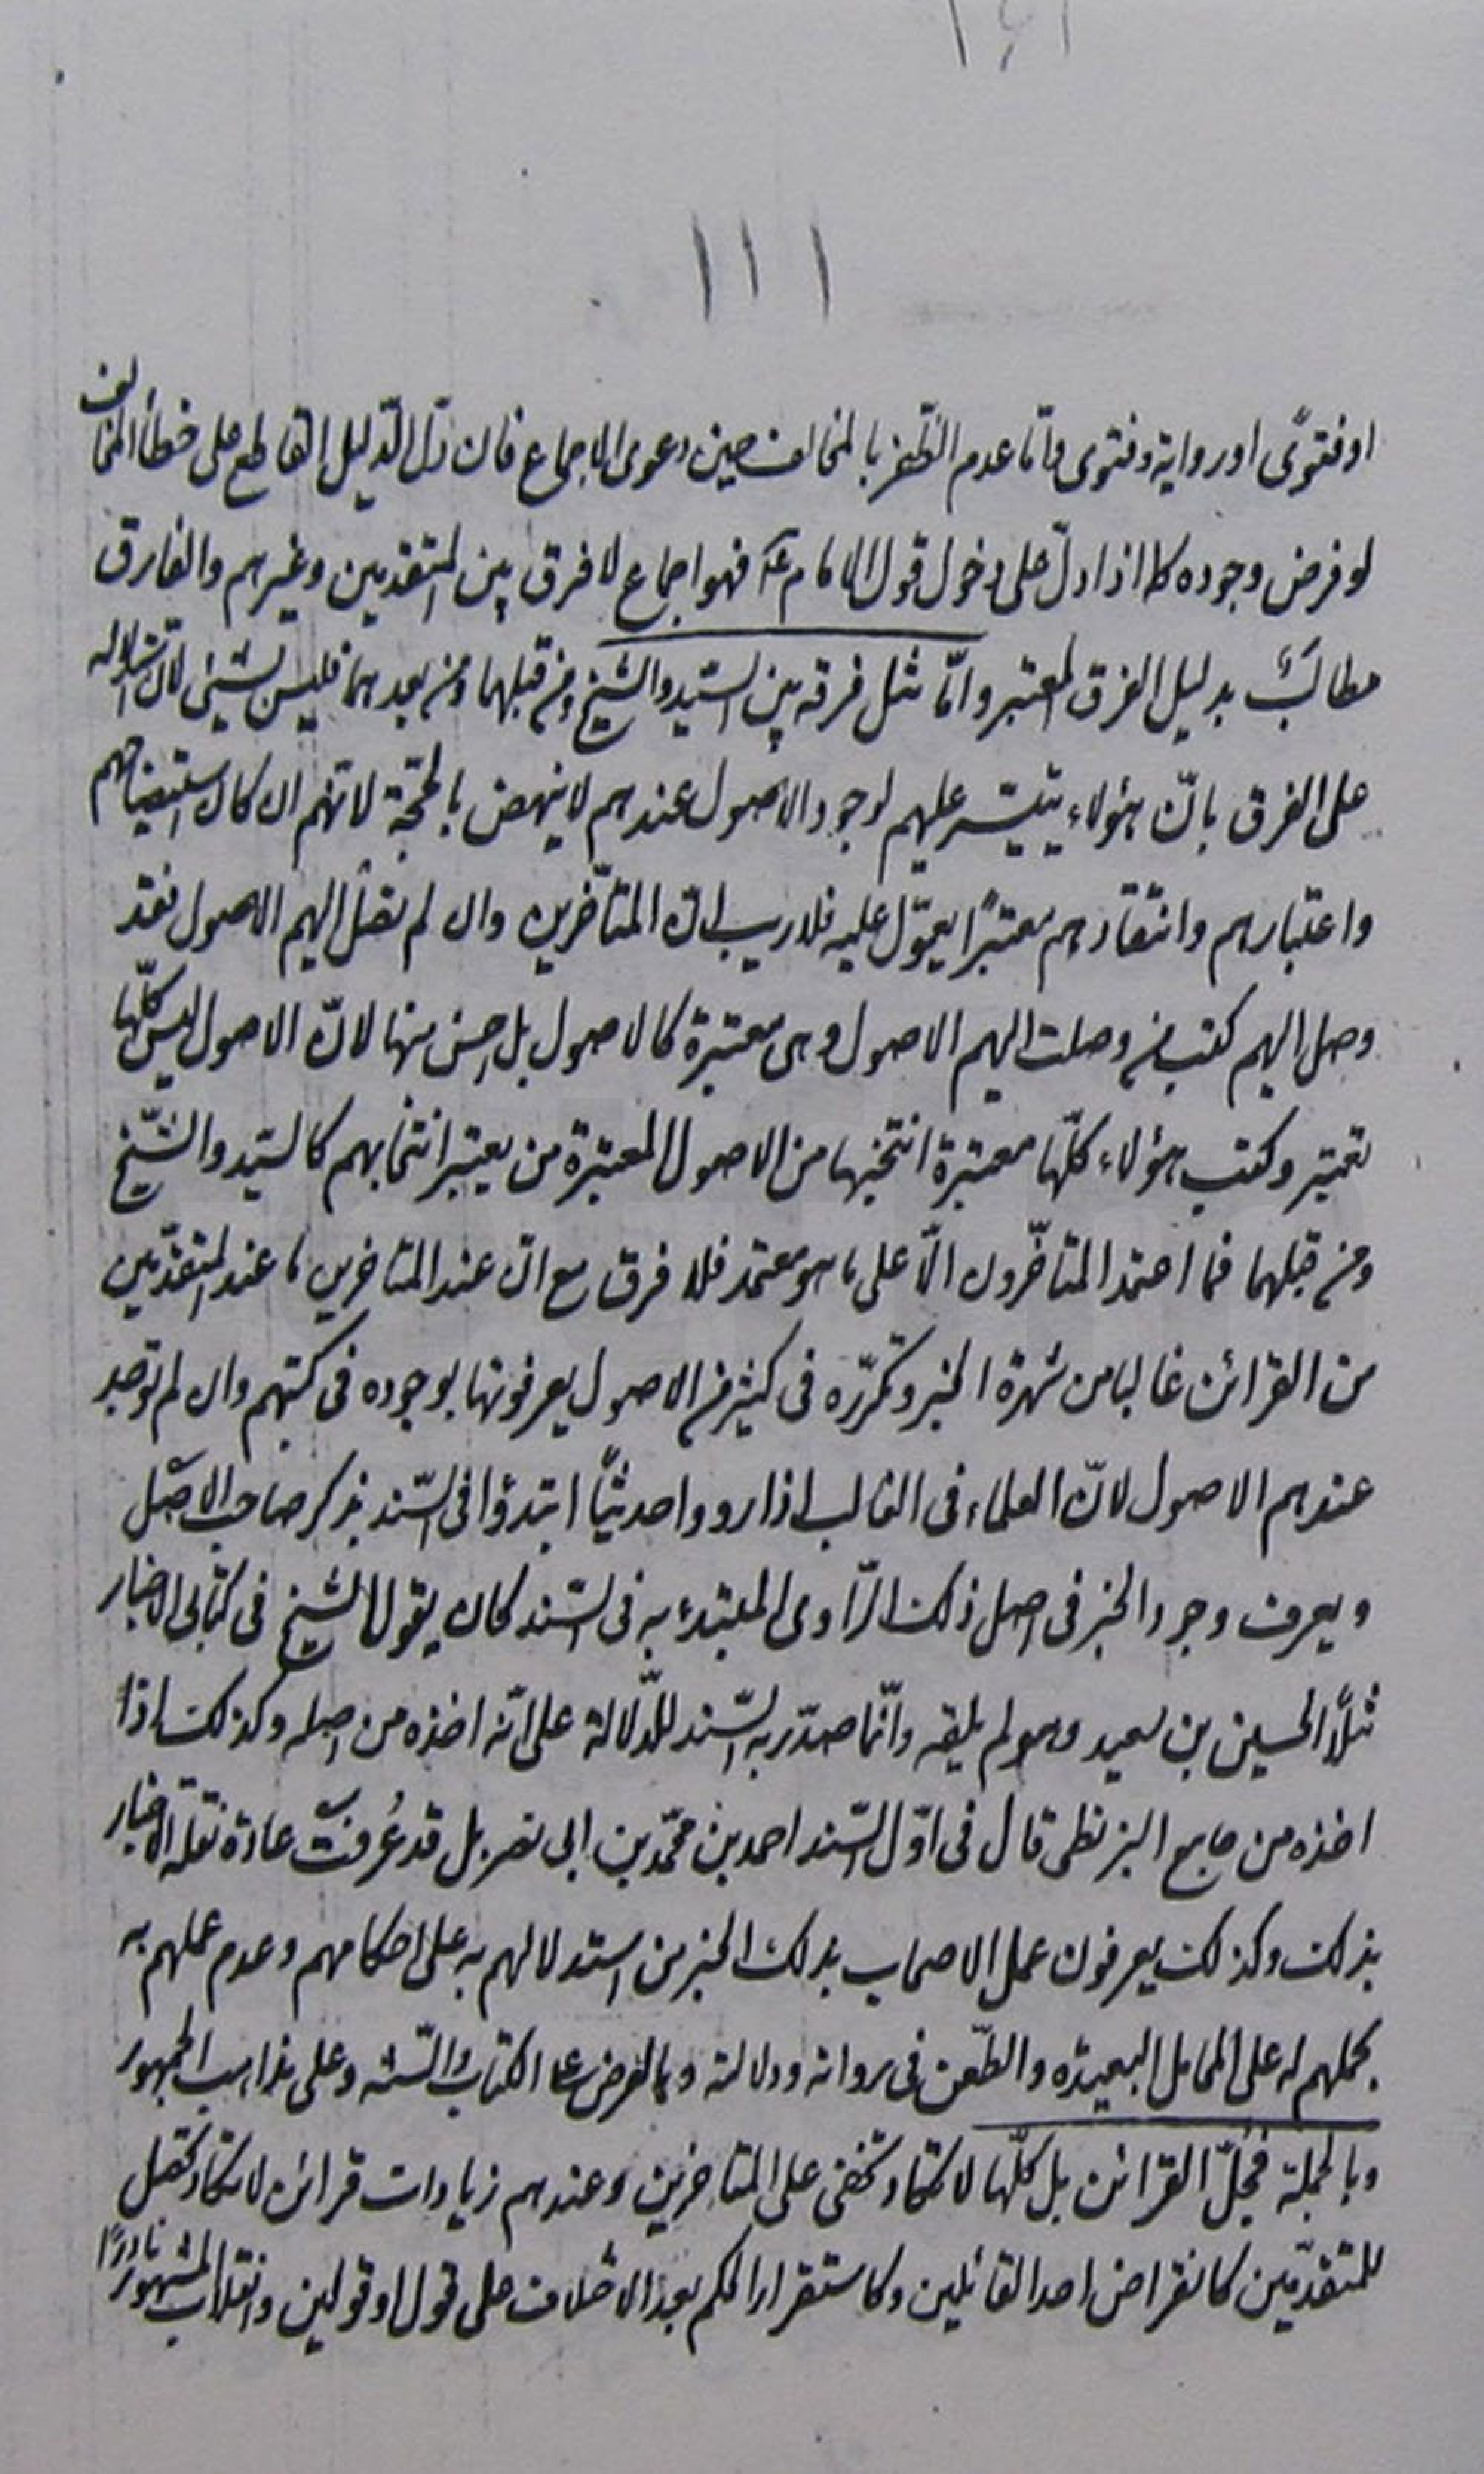 ١١١
او فتوًى او رواية وفتوى وامّا عدم الظّفر بالمخالف حين دعوى الاجماع فان دلّ الدّليل القاطع على خطأ المخالف
لو فرض وجوده كما اذا دلّ على دخول قول الامام عه فهو اجماع لا فرق بين المتقدمين وغيرهم والفارق
مطالَبٌ بدليل الفرق المعتبر وامّا مثل فرقه بين السّيد والشيخ ومن قبلهما ومن بعدهما فليس بشيئ لانّ استدلاله
على الفرق بانّ هؤلاء يتيسّر عليهم لوجود الاصول عندهم لا ينهض بالحجّة لانّهم ان كان استيضاحهم
واعتبارهم وانتقادهم معتبرًا يعوّل عليه فلا ريب انّ المتأخّرين وان لم تصل اليهم الاصول فقد
وصل اليهم كتب من وصلت اليهم الاصول وهى معتبرة كالاصول بل احسن منها لانّ الاصول ليس كلّها
تعتبر وكتب هؤلاء كلّها معتبرة انتخبها من الاصول المعتبرة من يعتبر انتخابهم كالسّيد والشّيخ
ومن قبلهما فما اعتمد المتأخّرون الّا على ما هو معتمد فلا فرق مع انّ عند المتاخرين ما عند المتقدّمين
من القرائن غالبا من شهرة الخبر وتكرّره فى كثير من الاصول يعرفونها بوجوده فى كتبهم وان لم توجد
عندهم الاصول لانّ العلماء فى الغالب اذا رووا حديثًا ابتدؤا فى السّند بذكر صاحب الاصل
ويعرف وجود الخبر فى اصل ذلك الرّاوى المبتدء به فى السّند كان يقول الشيخ فى كتابى الاخبار
مثلًا الحسين بن سعيد وهو لم يلقه وانّما صدّر به السّند للدّلالة على انّه اخذه من اصله وكذلك اذا
اخذه من جامع البزنطى قال فى اوّل السّند احمد بن محمّد بن ابى نصر بل قد عُرفت عادة نقلة الاخبار
بذلك وكذلك يعرفون عمل الاصحاب بذلك الخبر من استدلالهم به على احكامهم وعدم عملهم به
بحملهم له على المحامل البعيده والطّعن فى رواته ودلالته وبالعرض على الكتاب والسّنّه وعلى مذاهب الجمهور
وبالجملة فجُلّ القرائن بل كلّها لا تكاد تخفى على المتاخرين وعندهم زيادات قرائن لا تكاد تحصل
للمتقدّمين كانقراض احد القائلين وكاستقرار الحكم بعد الاختلاف على قول او قولين وانقلاب المشهور نادرًا